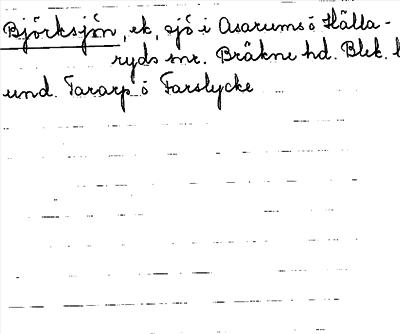 Björksjön, ek, sjö i Asarums ö Hälla-
ryds snr. Bräkne hd. Blek. l
und. Tararp ö Farslycke